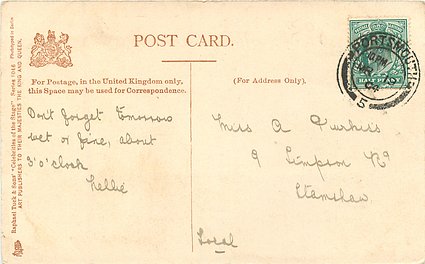 POST CARD.
For Postage, in the United Kingdom only,
this Space may be used for Correspondence.
(For Address Only).
Don't forget tomorrow
wet or fine, about
3 o'clock
Nellie
Miss A
9 Simpson Rd
Stamshaw
Local
PORTSMOUTH
5
Raphael Tuck & Sons' "Celebrities of the Stage" Series
ART PUBLISHERS TO THEIR MAJESTIES THE KING AND QUEEN.